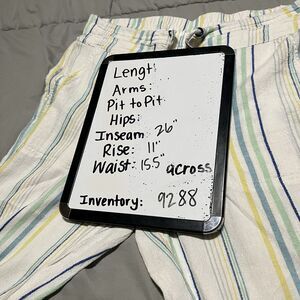 Lengt:
Arms:
Pit to Pit
Hips:
Inseam: 26"
Rise: 11"
Waist: 15.5" across
Inventory: 9288